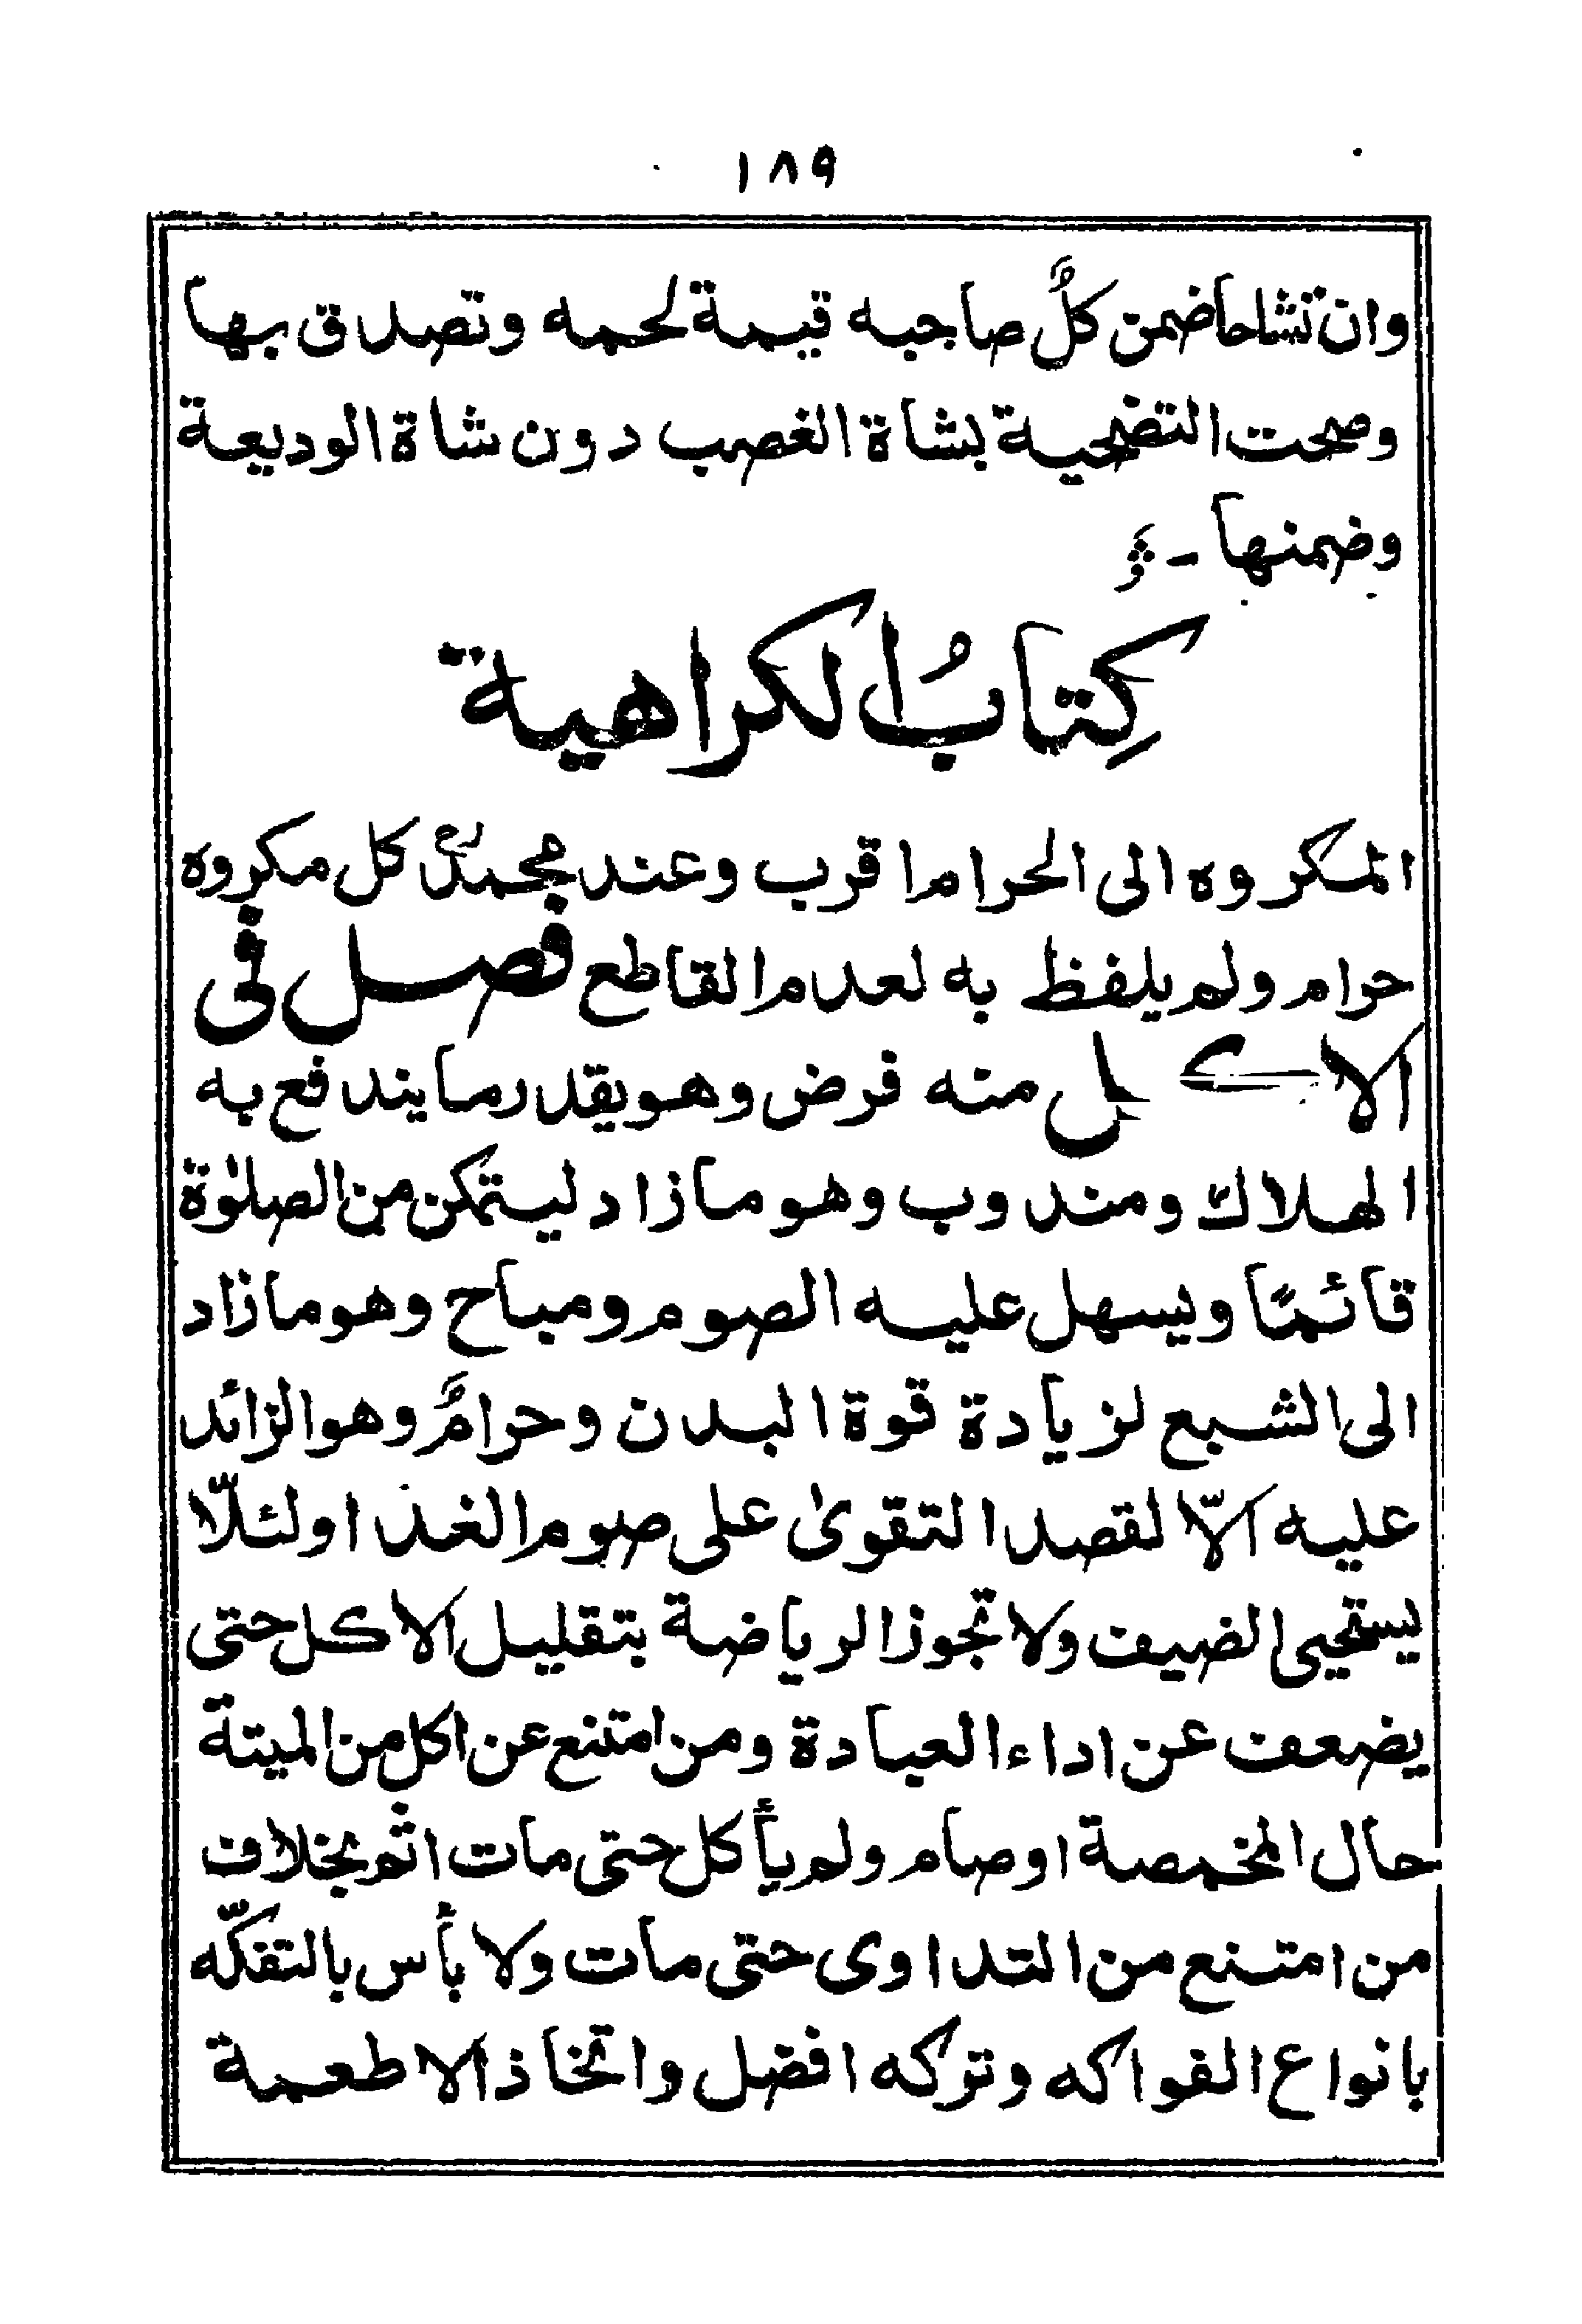 ١٨٩
وان تشاحا ضمن كلٌّ صاحبه قيمة لحمه وتصدق بها
وصحت التضحية بشاة الغصب دون شاة الوديعة
وضمنها -
كِتابُ الكراهية
المكروه الى الحرام اقرب وعند محمدؒ كل مكروه
حرام ولم يلفظ به لعدم القاطع فصل فى
الاكل منه فرض وهو بقدر ما يندفع به
الهلاك ومندوب وهو ما زاد ليتمكن من الصلوٰة
قائمًا ويسهل عليه الصوم ومباح وهو ما زاد
الى الشبع لزيادة قوة البدن وحرامٌ وهو الزائد
عليه الّا لقصد التقوىٰ على صوم الغد او لئلّا
يستحيى الضيف ولا تجوز الرياضة بتقليل الاكل حتى
يضعف عن اداء العبادة ومن امتنع عن اكل من الميتة
حال المخمصة او صام ولم يأكل حتى مات اثم بخلاف
من امتنع من التداوى حتى مات ولا بأس بالتفكّه
بانواع الفواكه وتركه افضل واتخاذ الاطعمة